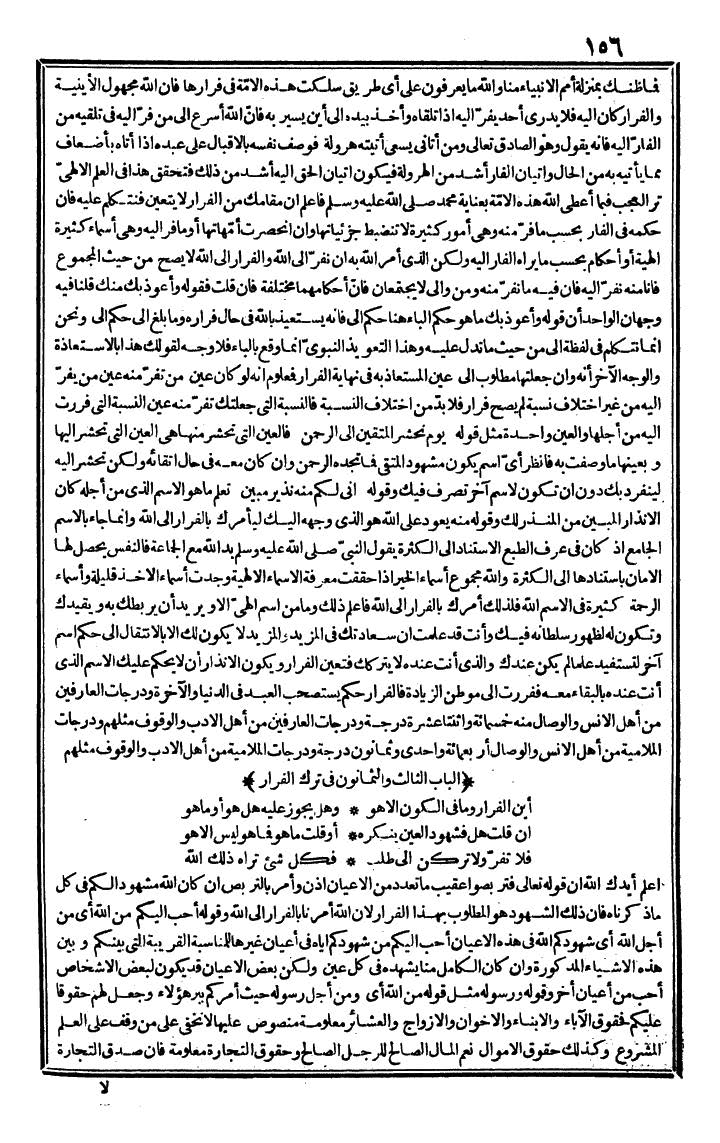 ١٥٦
فاظنك بمنزلة أمم الانبياء منا والله ما يعرفون على أى طريق سلكت هذه الامّة فى فرارها فان الله مجهول الأينية
والفرار كان اليه فلا يدرى أحد يفرّ اليه اذا تلقاه وأخذ بيده الى أين يسير به فانّ الله أسرع الى من فرّ اليه فى تلقيه من
الفارّ اليه فانه يقول وهو الصادق تعالى ومن أتانى يسعى أتيته هرولة فوصف نفسه بالاقبال على عبده اذا أتاه بأضعاف
مما يأتيه به من الحال واتيان الفار أشد من الهرولة فيكون اتيان الحق اليه أشد من ذلك فتحقق هذا فى العلم الالهىّ
تر العجب فيما أعطى الله هذه الامّة بعناية محمد صلى الله عليه وسلم فاعلم ان مقامك من الفرار لا يتعين فنتكلم عليه فان
حكمه فى الفار بحسب ما فرّ منه وهى أمور كثيرة لا تنضبط جزئياتها وان انحصرت أمّهاتها أو ما فر اليه وهى أسماء كثيرة
الهية أو أحكام بحسب ما يراه الفار اليه ولكن الذى أمر الله به ان نفرّ الى الله والفرار الى الله لا يصح من حيث المجموع
فانا منه نفرّ اليه فان فيه ما نفرّ منه ومن والى لا يجتمعان فانّ أحكامهما مختلفة فان قلت فقوله وأعوذ بك منك قلنا فيه
وجهان الواحد أن قوله وأعوذ بك ما هو حكم الباء هنا حكم الى فانه يستعيذ بالله فى حال فراره وما بلغ الى حكم الى ونحن
انما نتكلم فى لفظة الى من حيث ما تدل عليه وهذا التعويذ النبوىّ انما وقع بالباء فلا وجه لقولك هذا بالاستعاذة
والوجه الآخر أنه وان جعلتها مطلوب الى عين المستعاذ به فى نهاية الفرار فمعلوم انه لو كان عين من تفرّ منه عين من يفرّ
اليه من غير اختلاف نسبة لم يصح فرار فلا بدّ من اختلاف النسبة فالنسبة التى جعلتك تفرّ منه عين النسبة التى فررت
اليه من أجلها والعين واحدة مثل قوله يوم نحشر المتقين الى الرحمن فالعين التى تحشر منها هى العين التى تحشر اليها
وبعينها ما وصفت به فانظر أىّ اسم يكون مشهود المتقى فما تجده الرحمن وان كان معه فى حال اتقائه ولكن تحشر اليه
لينفرد بك دون ان تكون لاسم آخر تصرف فيك وقوله انى لكم منه نذير مبين تعلم ما هو الاسم الذى من أجله كان
الانذار المبين من المنذر لك وقوله منه يعود على الله هو الذى وجهه اليك ليأمرك بالفرار الى الله وانما جاء بالاسم
الجامع اذ كان فى عرف الطبع الاستناد الى الكثرة يقول النبىّ صلى الله عليه وسلم يد الله مع الجماعة فالنفس يحصل لها
الامان باستنادها الى الكثرة والله مجموع أسماء الخير اذا حققت معرفة الاسماء الالهية وجدت أسماء الاخذ قليلة وأسماء
الرحمة كثيرة فى الاسم الله فلذلك أمرك بالفرار الى الله فاعلم ذلك وما من اسم الهىّ الا ويريد أن يربطك به ويقيدك
وتكون له لظهور سلطانه فيك وأنت قد علمت ان سعادتك فى المزيد والمزيد لا يكون لك الا بالانتقال الى حكم اسم
آخر لتستفيد علما لم يكن عندك والذى أنت عنده لا يتركك فتعين الفرار ويكون الانذار أن لا يحكم عليك الاسم الذى
أنت عنده بالبقاء معه ففررت الى موطن الزيادة فالفرار حكم يستصحب العبد فى الدنيا والآخرة ودرجات العارفين
من أهل الانس والوصال منه خمسمائة واثنتا عشرة درجة ودرجات العارفين من أهل الادب والوقوف مثلهم ودرجات
الملامية من أهل الانس والوصال أربعمائة واحدى وثمانون درجة ودرجات الملامية من أهل الادب والوقوف مثلهم
﴿الباب الثالث والثمانون فى ترك الفرار﴾
أين الفرار وما فى الكون الا هو * وهل يجوز عليه هل هو أو ما هو
ان قلت هل فشهود العين ينكره * أو قلت ما هو فما هو ليس الا هو
فلا تفرّ ولا تركن الى طلب * فكل شئ تراه ذلك الله
اعلم أيدك الله ان قوله تعالى فتربصوا عقيب ما تعدد من الاعيان اذن وأمر بالتربص ان كان الله مشهود الكم فى كل
ما ذكرناه فان ذلك الشهود هو المطلوب بهذا الفرار لان الله أمرنا بالفرار الى الله وقوله أحب اليكم من الله أى من
أجل الله أى شهودكم الله فى هذه الاعيان أحب اليكم من شهودكم اياه فى أعيان غيرها للمناسبة القريبة التى بينكم وبين
هذه الاشياء المذكورة وان كان الكامل منا يشهده فى كل عين ولكن بعض الاعيان قد يكون لبعض الاشخاص
أحب من أعيان أخر وقوله ورسوله مثل قوله من الله أى ومن أجل رسوله حيث أمركم ببر هؤلاء وجعل لهم حقوقا
عليكم فحقوق الآباء والابناء والاخوان والازواج والعشائر معلومة منصوص عليها لا تخفى على من وقف على العلم
المشروع وكذلك حقوق الاموال نعم المال الصالح للرجل الصالح وحقوق التجارة معلومة فان صدق التجارة
لا